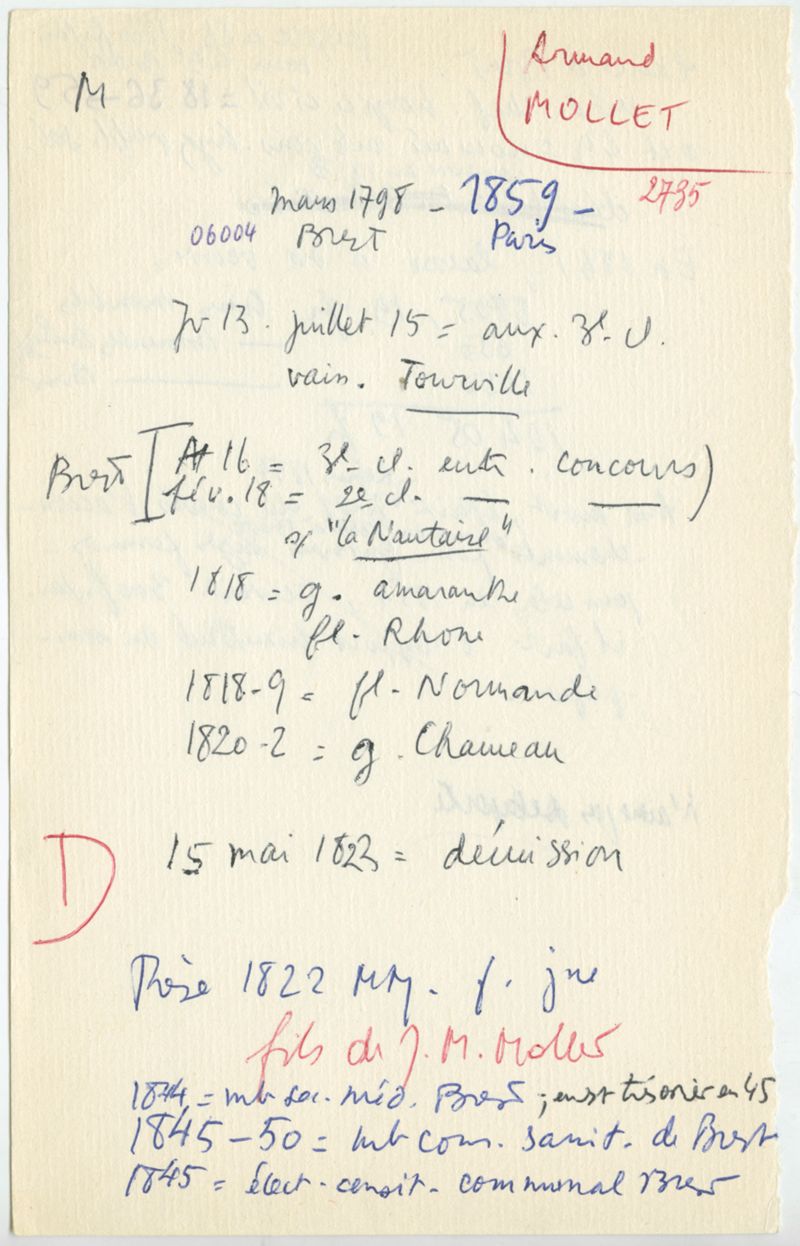 M
Armand
MOLLET
2735
mars 1798 - 1859 -
06004 Brest Paris
Jr 13. juillet 15 = aux. 3e cl.
vaiss. Tourville
Brest [ At 16 = 3e cl. entr. concours)
fév. 18 = 2e cl. —
"la Nantaise"
1818 = g. amaranthe
fl- Rhone
1818-9 = fl- Normande
1820-2 = g. Chameau
D
15 mai 1823 = démission
Thèse 1822 MM. f. jne
fils de J. M. Mollet
1844 = mb soc. méd. Brest ; en st trésorier en 45
1845-50 = mb com. sanit. de Brest
1845 = élect. censit. communal Brest